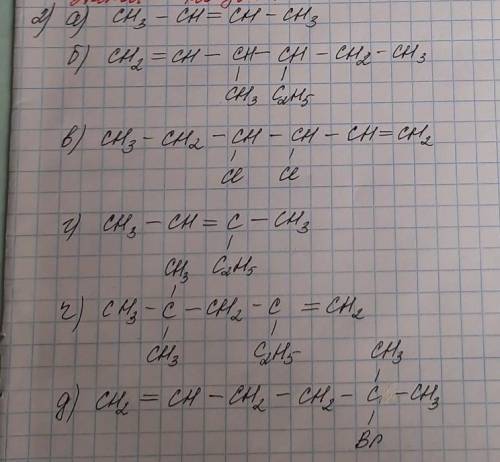 2) а) CH3 – CH = CH – CH3
б) CH2 = CH – CH – CH – CH2 – CH3
CH3 C2H5
в) CH3 – CH2 – CH – CH – CH = CH2
Cl Cl
г) CH3 – CH = C – CH3
CH3 C2H5
г) CH3 – C – CH2 – C = CH2
CH3 C2H5 CH3
д) CH2 = CH – CH2 – CH2 – C – CH3
Br